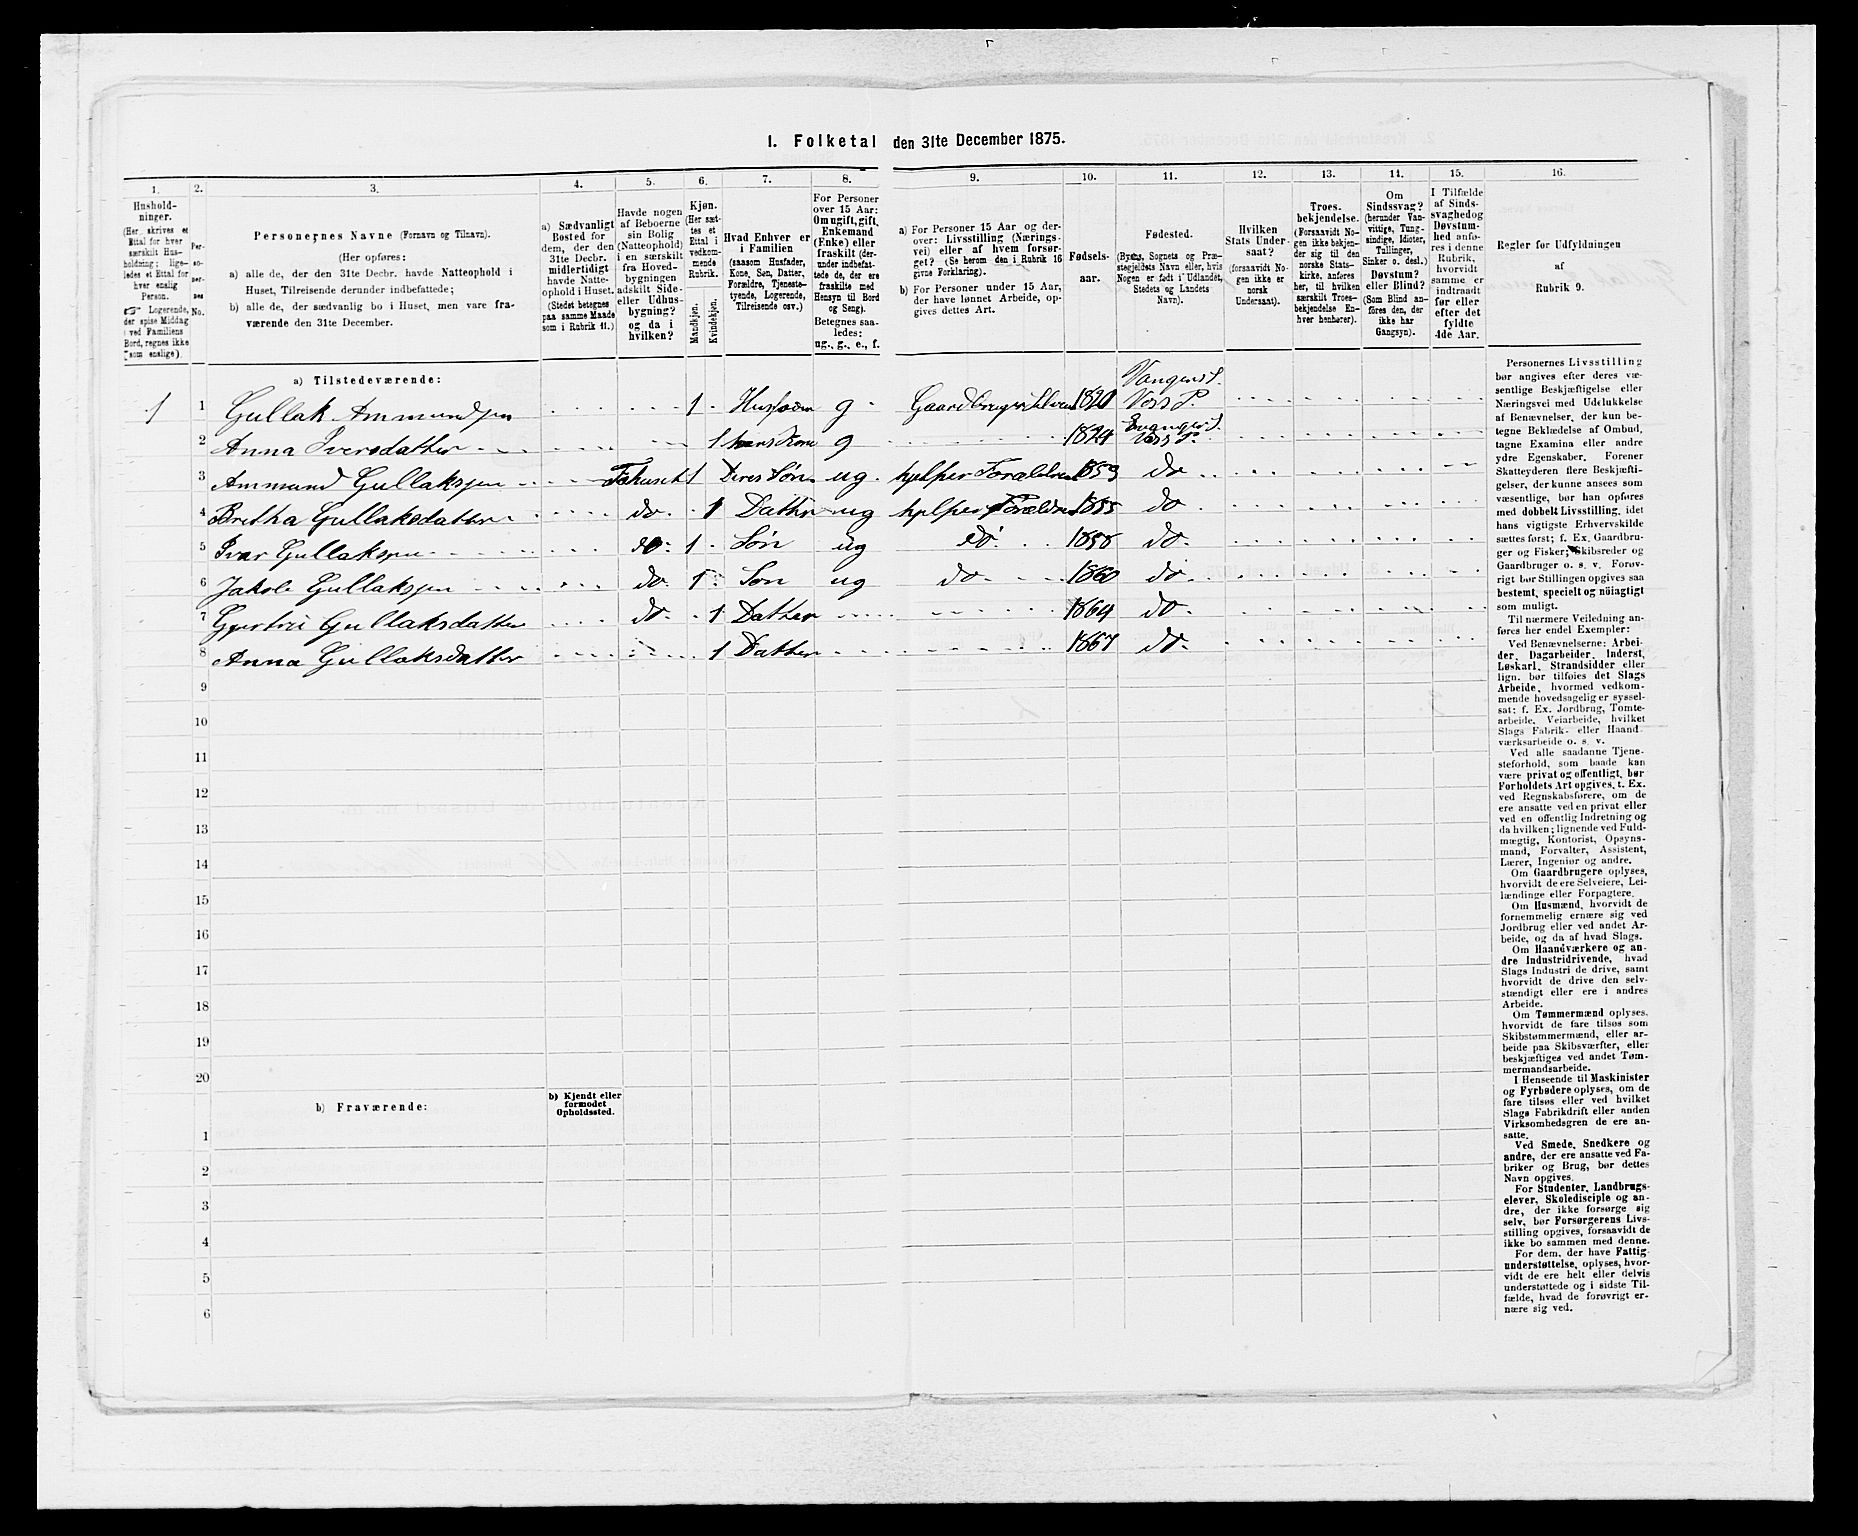 1. Folketal den 31te December 1875.
1. 2. 3. 4. 5. 6. 7. 8. 9. 10. 11. 12. 13. 14. 15. 16.
Hushold-
ninger.
(Her skrives et
Ettal for hver
særskilt Hus-
holdning; lige-
ledes et Ettal for
hver enslig
Person.
☞ Logerende,
der spise Middag
ved Familiens
Bord, regnes ikke
som enslige).
Per-
so-
ner-
nes
No.
Personernes Navne (Fornavn og Tilnavn).
(Her opføres:
a) alle de, der den 31te Decbr. havde Natteophold i
Huset, Tilreisende derunder indbefattede;
b) alle de, der sædvanlig bo i Huset, men vare fra-
værende den 31te December.
a) Sædvanligt
Bosted for
dem, der den
31te Decbr.
midlertidigt
havde Natte-
ophold i Huset.
(Stedet betegnes
paa samme Maade
som i Rubrik 11.)
Havde nogen
af Beboerne
sin Bolig
(Natteophold)
i en særskilt
fra Hoved-
bygningen
adskilt Side-
eller Udhus-
bygning?
og da i
hvilken?
Kjøn.
(Her sæt-
tes et
Ettal i
vedkom-
mende
Rubrik.
Mandkjøn.
Kvindekjøn.
Hvad Enhver er
i Familien
(saasom Husfader,
Kone, Søn, Datter,
Forældre, Tjeneste-
tyende, Logerende,
Tilreisende osv.)
For Personer
over 15 Aar:
Om ugift, gift,
Enkemand
(Enke) eller
fraskilt (der-
under indbefat-
tede de, der ere
fraskilte med
Hensyn til Bord
og Seng).
Betegnes saa-
ledes:
ug., g., e., f.
a) For Personer 15 Aar og der-
over: Livsstilling (Nærings-
vei) eller af hvem forsør-
get? (Se herom den i Rubrik 16
givne Forklaring).
b) For Personer under 15 Aar,
der have lønnet Arbeide, op-
gives dettes Art.
Fødsels-
aar.
Fødested.
(Byens, Sognets og Præ-
stegjeldets Navn eller, hvis
Nogen er født i Udlandet,
Stedets og Landets
Navn).
Hvilken
Stats Under-
saat?
(forsaavidt No-
gen ikke er
norsk
Undersaat).
Troes-
bekjendelse.
(Forsaavidt No-
gen ikke bekjen-
der sig til den
norske Stats-
kirke, anføres
her, til hvilken
særskilt Troes-
bekjendelse En-
hver henhører).
Om
Sindssvag?
(herunder Van-
vittige, Tung-
sindige, Idioter,
Tullinger,
Sinker o. desl.)
Døvstum?
eller Blind?
(Som Blind an-
føres den, der
ikke har
Gangsyn).
I Tilfælde
af Sinds-
svaghed og
Døvstum-
hed anfø-
res i denne
Rubrik,
hvorvidt
samme er
indtraadt
før eller
efter det
fyldte
4de Aar.
Regler for Udfyldningen
af
Rubrik 9.
a) Tilstedeværende:
1 1 Gullak Ammundsen 1 Husfader g Gaardbruger Selveier 1820 Vangens S. Voss P.
2 Anna Iversdatter 1 hans Kone g 1824 Evanger S. Voss P.
3 Ammund Gullaksen Fæhuset 1 Deres Søn ug hjelper Forældrene 1853 do
4 Bretha Gullaksdatter do 1 Datter ug hjelper Forældrene 1855 do
5 Ivar Gullaksen do 1 Søn ug do 1858 do
6 Jakob Gullaksen do 1 Søn ug do 1860 do
7 Gjertrü Gullaksdatter do 1 Datter 1864 do
8 Anna Gullaksdatter 1 Datter 1867 do
9
10
11
12
13
14
15
16
17
18
19
20
b) Fraværende:
b) Kjendt eller
formodet
Opholdssted.
1
2
3
4
5
6
Personernes Livsstilling
bør angives efter deres væ-
sentlige Beskjæftigelse eller
Næringsvei med Udelukkelse
af Benævnelser, der kun be-
tegne Beklædelse af Ombud,
tagne Examina eller andre
ydre Egenskaber. Forener
Skatteyderen flere Beskjæfti-
gelser, der kunne ansees som
væsentlige, bør han opføres
med dobbelt Livsstilling, idet
hans vigtigste Erhvervskilde
sættes først; f. Ex. Gaardbru-
ger og Fisker; Skibsreder og
Gaardbruger o. s. v. Forøv-
rigt bør Stillingen opgives saa
bestemt, specielt og nøiagtigt
som muligt.
Til nærmere Veiledning an-
føres her endel Exempler:
Ved Benævnelserne: Arbei-
der, Dagarbeider, Inderst,
Løskarl, Strandsidder eller
lign. bør tilføies det Slags
Arbeide, hvormed vedkom-
mende hovedsagelig er syssel-
sat; f. Ex. Jordbrug, Tomte-
arbeide, Veiarbeide, hvilket
Slags Fabrik- eller Haand-
værksarbeide o. s. v.
Ved alle saadanne Tjene-
steforhold, som baade kan
være privat og offentligt, bør
Forholdets Art opgives, t. Ex.
ved Regnskabsførere, om de
ere ansatte ved en privat eller
ved en offentlig Indretning og
da hvilken; lignende ved Fuld-
mægtig, Kontorist, Opsyns-
mand, Forvalter, Assistent,
Lærer, Ingeniør og andre.
Om Gaardbrugere oplyses,
hvorvidt de ere Selveiere, Lei-
lændinge eller Forpagtere.
Om Husmænd, hvorvidt de
fornemmelig ernære sig ved
Jordbrug eller ved andet Ar-
beide, og da af hvad Slags.
Om Haandværkere og an-
dre Industridrivende, hvad
Slags Industri de drive, samt
hvorvidt de drive den selv-
stændigt eller ere i andres
Arbeide.
Om Tømmermænd oplyses,
hvorvidt de fare tilsøs som
Skibstømmermænd, eller ar-
beide paa Skibsværfter, eller
beskjæftiges ved andet Tøm-
mermandsarbeide.
I Henseende til Maskinister
og Fyrbødere oplyses, om de
fare tilsøs eller ved hvilket
Slags Fabrikdrift eller anden
Virksomhedsgren de ere an-
satte.
Ved Smede, Snedkere og
andre, der ere ansatte ved Fa-
briker og Brug, bør dettes
Navn opgives.
For Studenter, Landbrugs-
elever, Skoledisciple og an-
dre, der ikke forsørge sig
selv, bør Forsørgerens Livs-
stilling opgives, forsaavidt de
ikke bo sammen med denne.
For dem, der have Fattig-
understøttelse, oplyses, hvor-
vidt de ere helt eller delvis
understøttede og i sidste Til-
fælde, hvad de forøvrigt er-
nære sig ved.